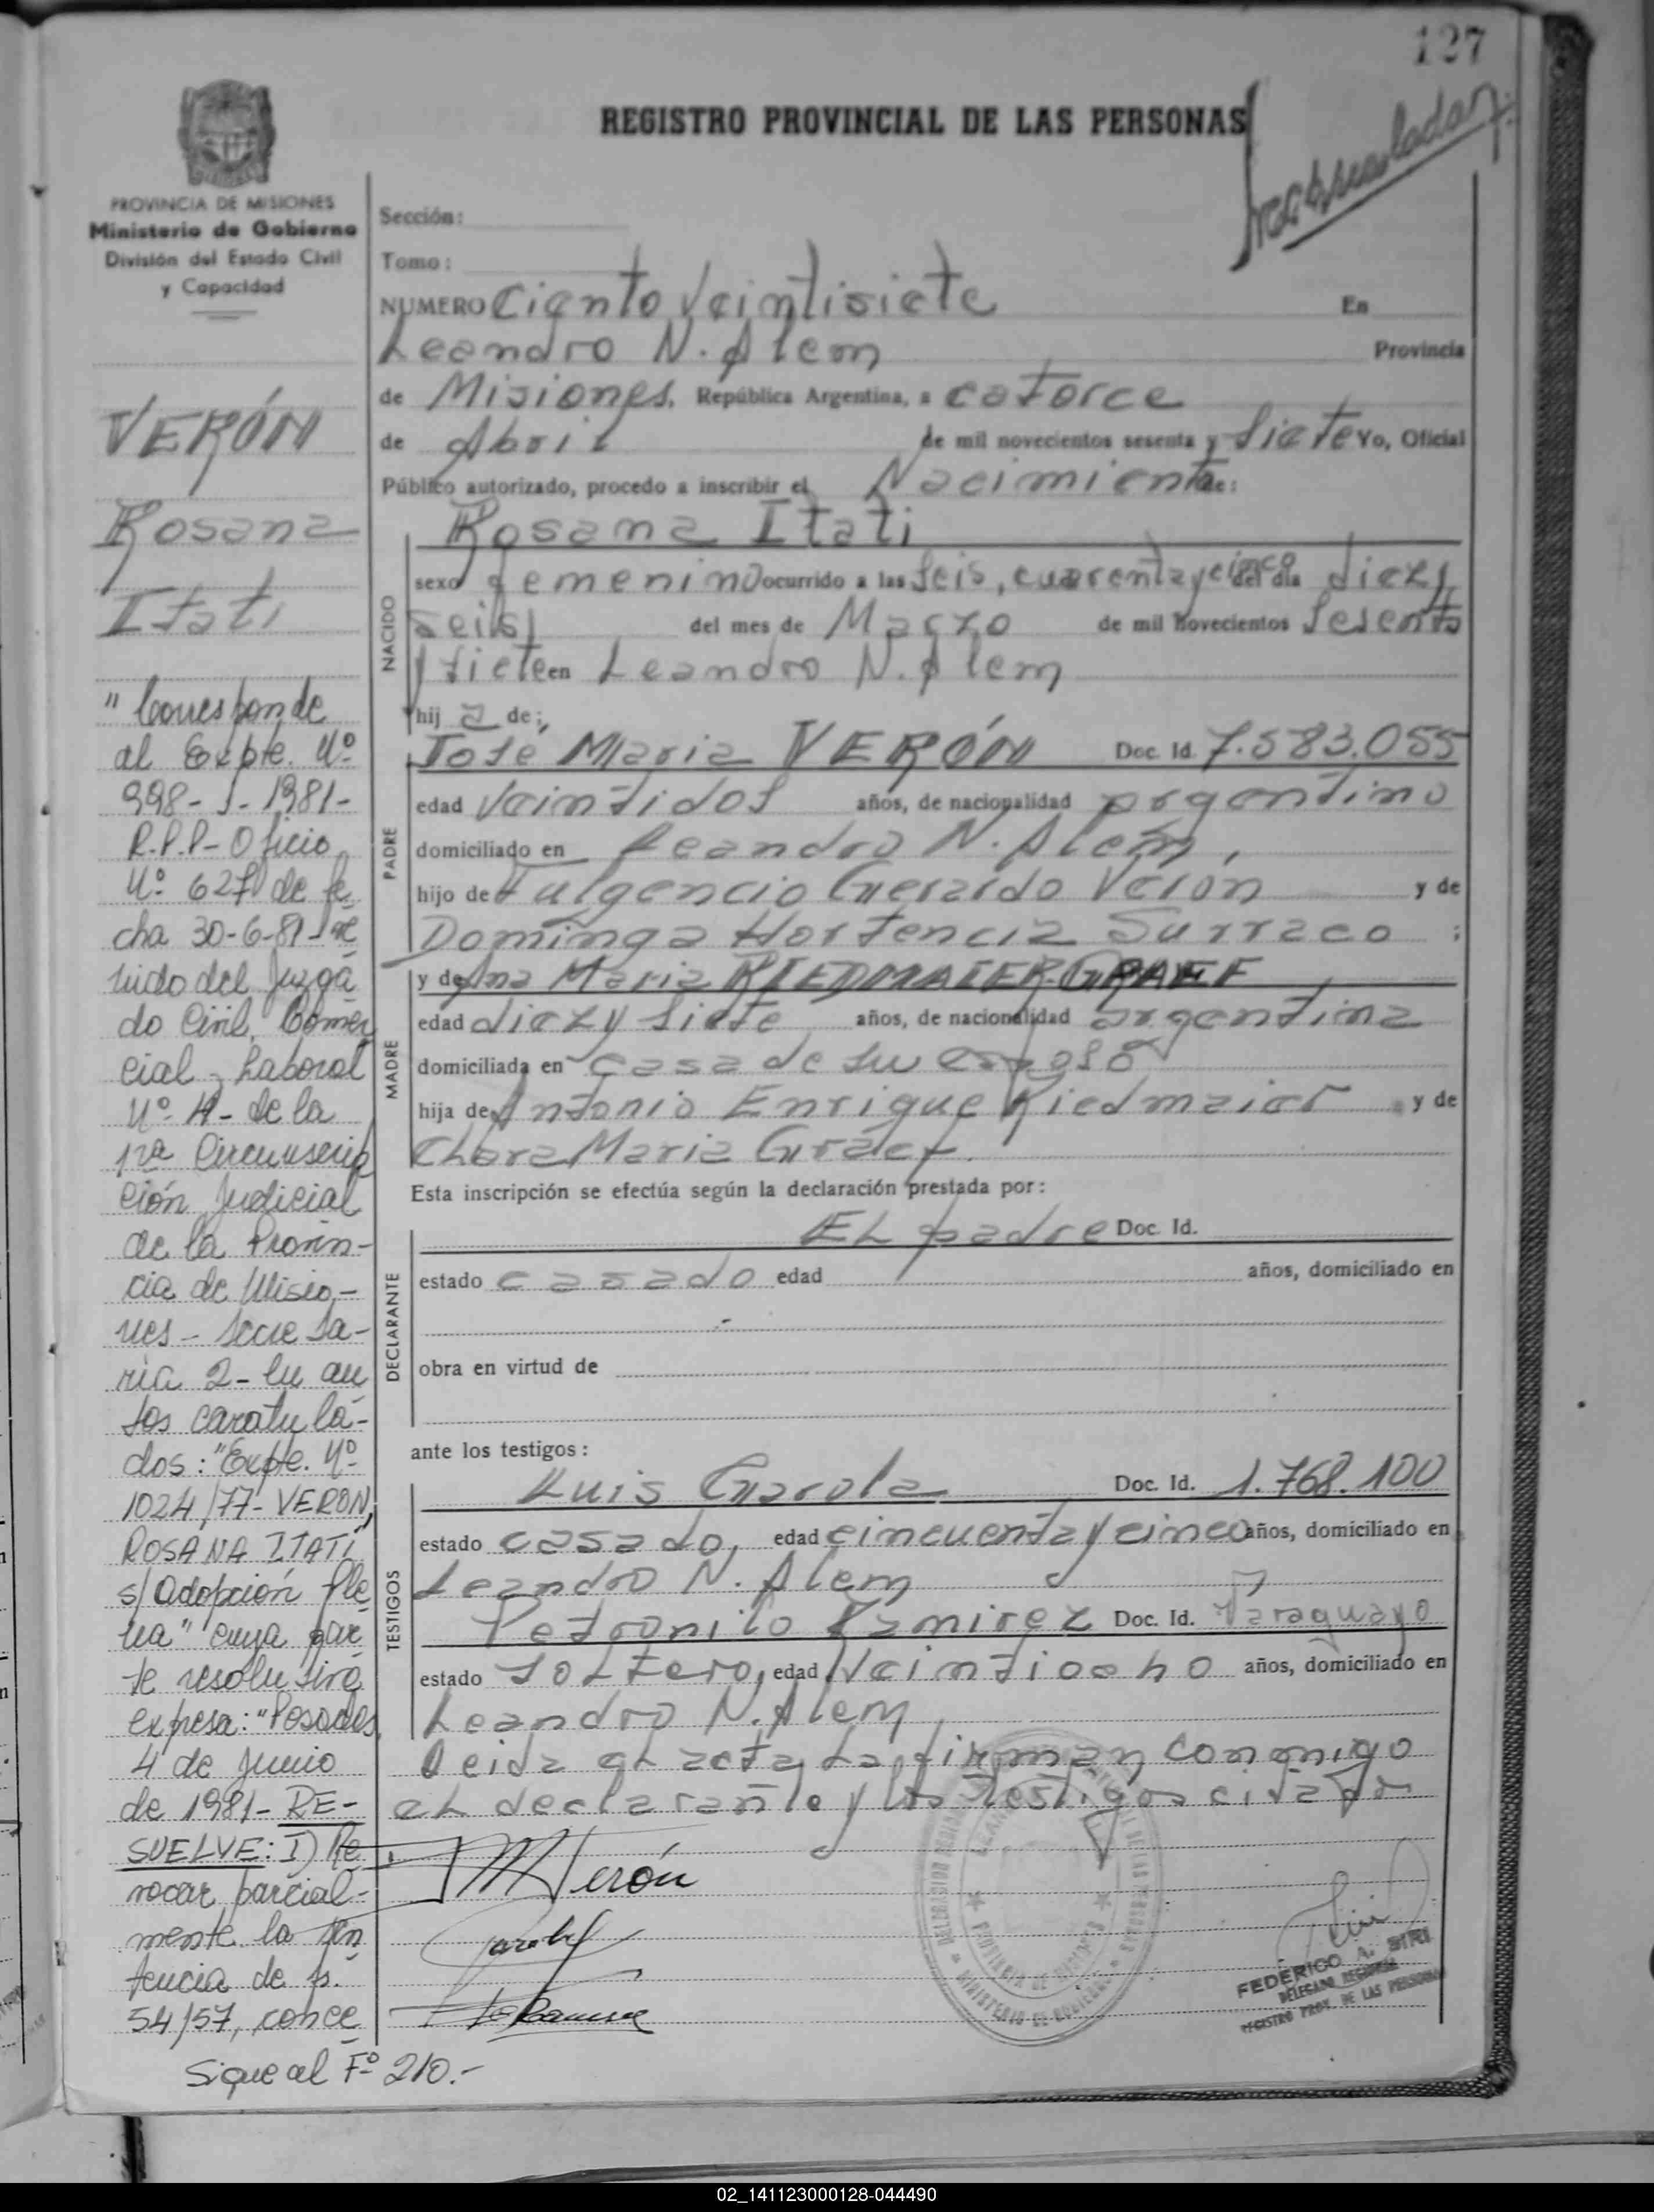 127
REGISTRO PROVINCIAL DE LAS PERSONAS
PROVINCIA DE MISIONES
Ministerio de Gobierno
División del Estado Civil
y Capacidad
VERÓN
Rosana
Itati
"Corresponde
al Expte. Nº
998- J- 1981-
R.P.P- Oficio
Nº 627 de fe
cha 30-6-81- re
nido del Juzga
do Civil, Comer
cial y Laboral
Nº 4- de la
1ra Circunscrip
ción Judicial
de la Provin-
cia de Misio-
nes - Secreta-
ria 2- en au
tos caratula-
dos: "Expte. Nº
1024/77- VERON,
ROSANA ITATI
s/ Adopción Ple
na" cuya par
te resolutiva
expresa: "Posadas,
4 de Junio
de 1981- RE-
SUELVE: I) Re
vocar parcial-
mente la sen
tencia de fs.
54/57, conce
Sigue al Fº 210.-
Sección:
Tomo:
NUMERO Ciento Veintisiete En
Leandro N. Alem Provincia
de Misiones, República Argentina, a catorce
de Abril de mil novecientos sesenta y Siete Yo, Oficial
Público autorizado, procedo a inscribir el Nacimiento de:
Rosana Itati
NACIDO
sexo femenino ocurrido a las Seis, cuarenta y cinco del día diez y
seis del mes de Marzo de mil novecientos Sesenta
y siete en Leandro N. Alem
hij a de:
PADRE
José Maria VERÓN Doc. Id. 7.583.055
edad Veintidos años, de nacionalidad argentino
domiciliado en Leandro N. Alem,
hijo de Fulgencio Gerardo Verón y de
Dominga Hortencia Surraco ;
MADRE
y de Ana Maria RIEDMAIER-GRAEF
edad diez y siete años, de nacionalidad argentina
domiciliada en casa de su esposo
hija de Antonio Enrique Riedmaier y de
Chara Maria Graef.
Esta inscripción se efectúa según la declaración prestada por:
DECLARANTE
EL padre Doc. Id.
estado casado edad años, domiciliado en
obra en virtud de
ante los testigos:
TESTIGOS
Luis Garola Doc. Id. 1.768.100
estado casado, edad cincuenta y cinco años, domiciliado en
Leandro N. Alem y
Petronilo Ramirez Doc. Id. Paraguayo
estado soltero, edad Veintiocho años, domiciliado en
Leandro N. Alem,
Leida el acta, la firman conmigo
el declarante y los testigos citados
JMVerón
Ramirez
PROVINCIA DE MISIONES
MINISTERIO DE GOBIERNO
FEDERICO A. SIRI
DELEGADO REGIONAL
REGISTRO PROV. DE LAS PERSONAS
02_141123000128-044490